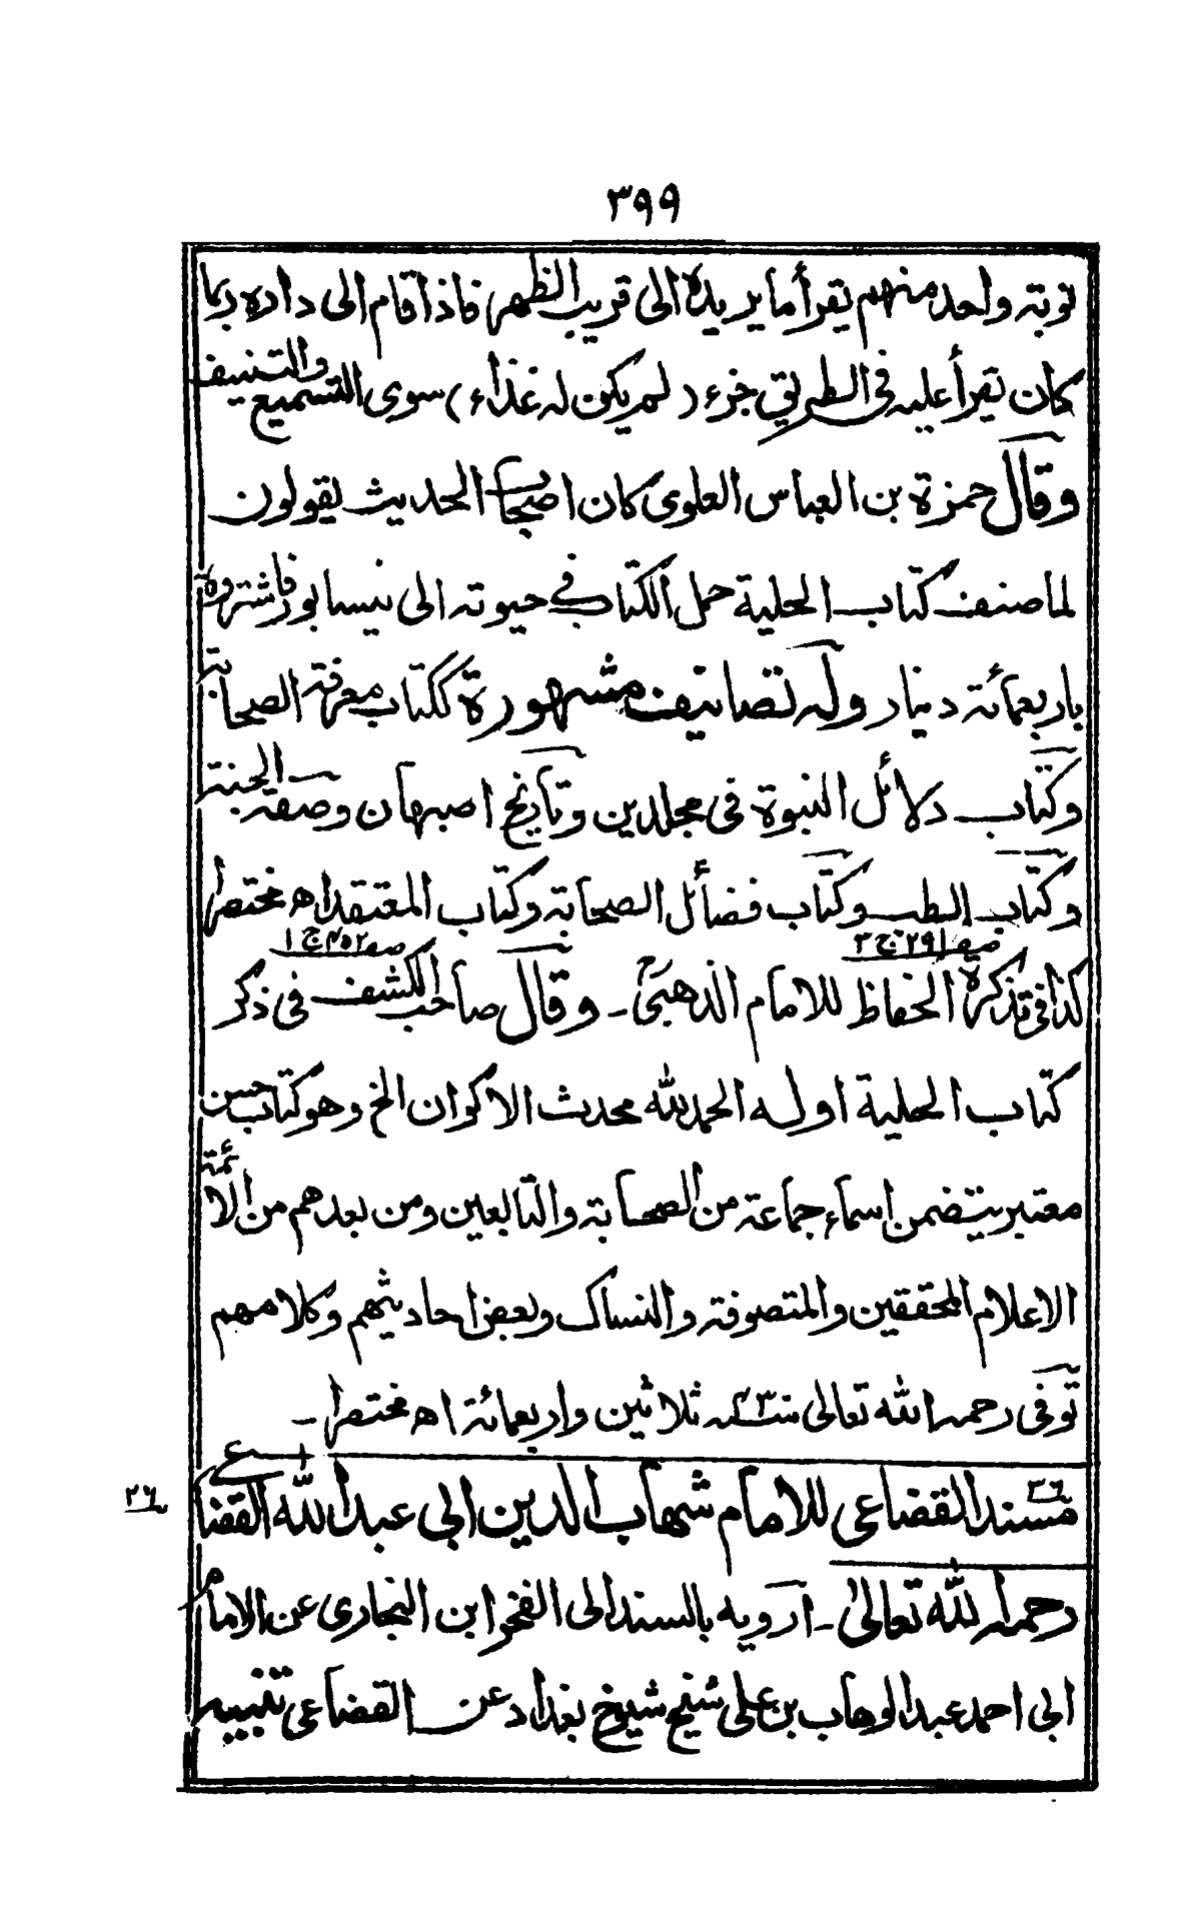 ٣٩٩
نوبته واحد منهم يقرأ ما يريده الى قريب الظهر فاذا قام الى داره ربما
كان يقرأ عليه فى الطريق جزء (لم يكن له غذاء) سوى التسميع والتنيف
وقال حمزة بن العباس العلوى كان اصحاب الحديث يقولون
لما صنف كتاب الحلية حمل الكتاب فى حيوته الى نيسابور فاشتروه
باربعمائة دينار وله تصانيف مشهورة ككتاب معرفة الصحابة
وكتاب دلائل النبوة فى مجلدين وتاريخ اصبهان وصفة الجنة
وكتاب الطب وكتاب فضائل الصحابة وكتاب المعتقد اه مختصرا
صفـ ٢٩١ ج ٣ صفـ ٤٥٢ ج ١
كذا فى تذكرة الحفاظ للامام الذهبى ۔ وقال صاحب الكشف فى ذكر
كتاب الحلية اوله الحمد لله محدث الاكوان الخ وهو كتاب حسن
معتبر يتضمن اسماء جماعة من الصحابة والتابعين ومن بعدهم من الائمة
الاعلام المحققين والمتصوفة والنساك وبعض احاديثهم وكلامهم
توفى رحمه الله تعالى سنـ٤٣٠ـه ثلاثين واربعمائة اه مختصرا ۔
٢٦ مسند القضاعى للامام شهاب الدين ابى عبد الله القضاعى
٢٦
رحمه الله تعالى ۔ ارويه بالسند الى الفخر ابن البخارى عن الامام
ابى احمد عبد الوهاب بن على شيخ شيوخ بغداد عن القضاعى تنبيه